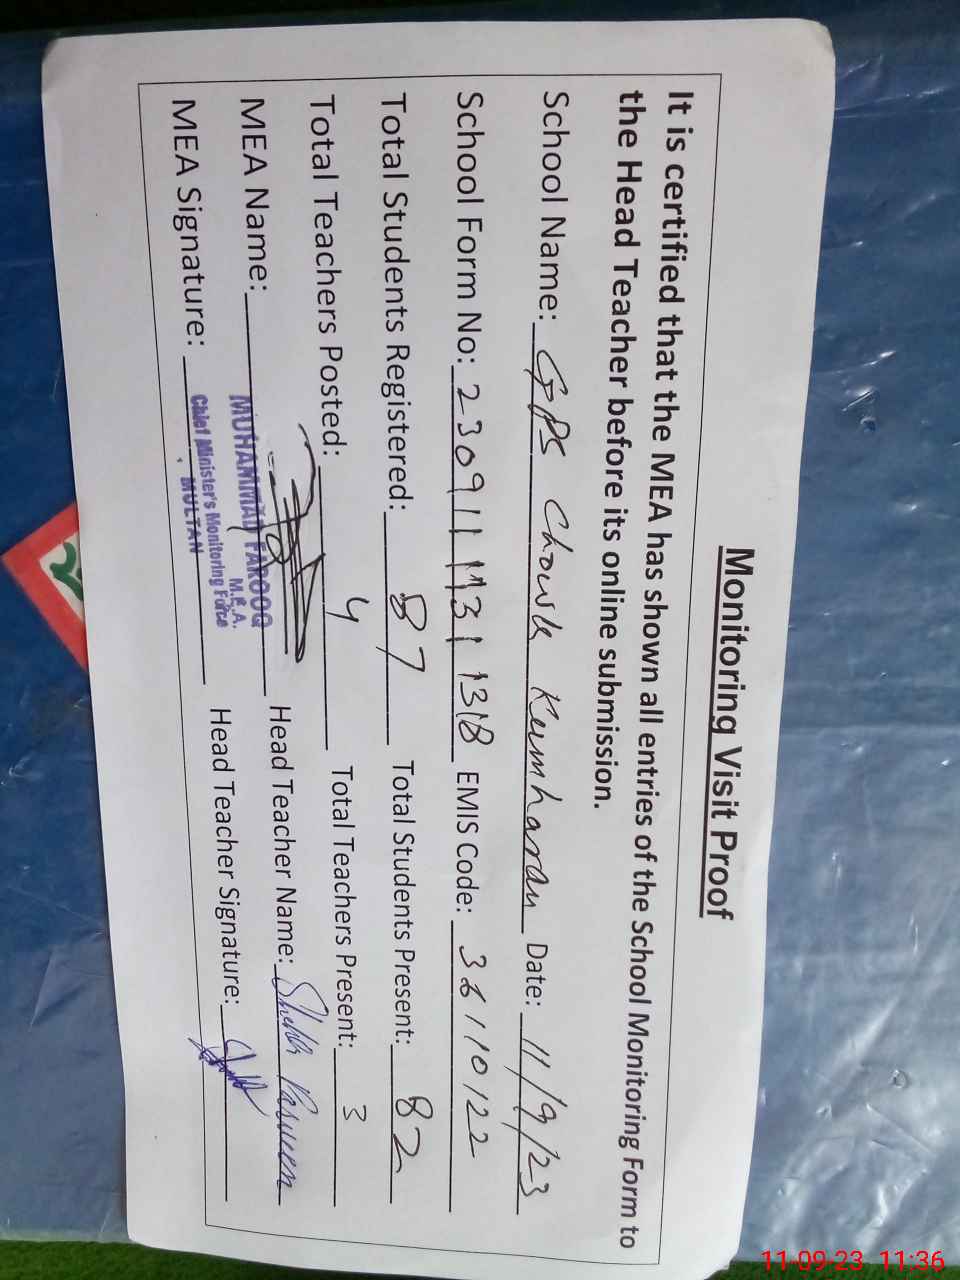 Monitoring Visit Proof
It is certified that the MEA has shown all entries of the School Monitoring Form to
the Head Teacher before its online submission.
School Name: GPS Chowk Kumharan Date: 11/9/23
School Form No: 230911 1131 1318 EMIS Code: 36110122
Total Students Registered: 87 Total Students Present: 82
Total Teachers Posted: 4 Total Teachers Present: 3
MEA Name: MUHAMMAD FAROOQ Head Teacher Name: Parveen
M.E.A.
Chief Minister's Monitoring Force
MEA Signature: MULTAN Head Teacher Signature:
11-09-23 11:36